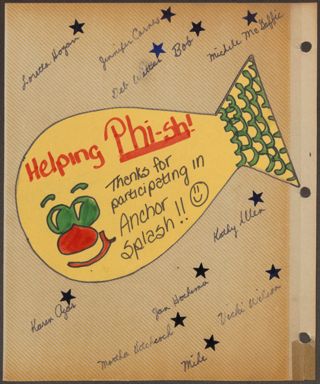 Loretta Hogan
Jennifer Carnes
Deb Walker
Bob
Michele McGaffic
Helping Phi-sh!
Thanks for
participating in
Anchor
Splash!!
Kathy Allen
Karen Agar
Jan Hockema
Vicki Wilson
Martha Hitchcock
Mike